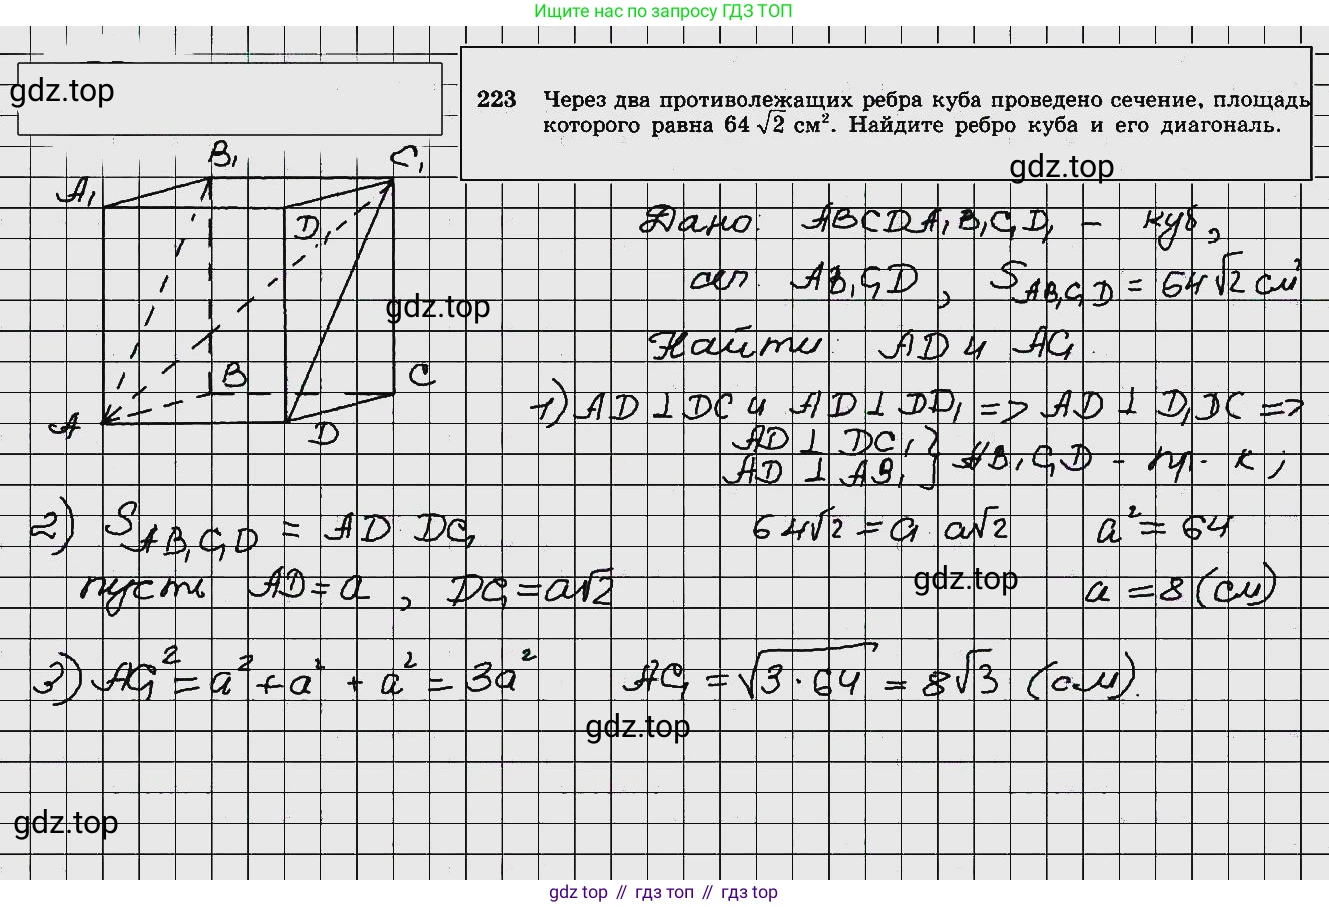 Ищите нас по запросу ГДЗ ТОП
gdz.top
223 Через два противолежащих ребра куба проведено сечение, площадь
которого равна 64 √2 см². Найдите ребро куба и его диагональ.
gdz.top
B₁
C₁
A₁
D₁
B
C
A
D
gdz.top
Дано: ABCDA₁B₁C₁D₁ – куб,
сеч AB₁C₁D, S_AB₁C₁D = 64√2 см²
Найти: AD и AC₁
1) AD ⊥ DC и AD ⊥ DD₁ => AD ⊥ D₁DC =>
AD ⊥ DC₁ }
AD ⊥ AB₁ } AB₁C₁D – пр-к;
2) S_AB₁C₁D = AD · DC₁
64√2 = a · a√2 a² = 64
пусть AD = a, DC₁ = a√2
gdz.top
a = 8 (см)
3) AC₁² = a² + a² + a² = 3a² AC₁ = √3·64 = 8√3 (см).
gdz.top
gdz.top
gdz top // гдз топ // gdz top